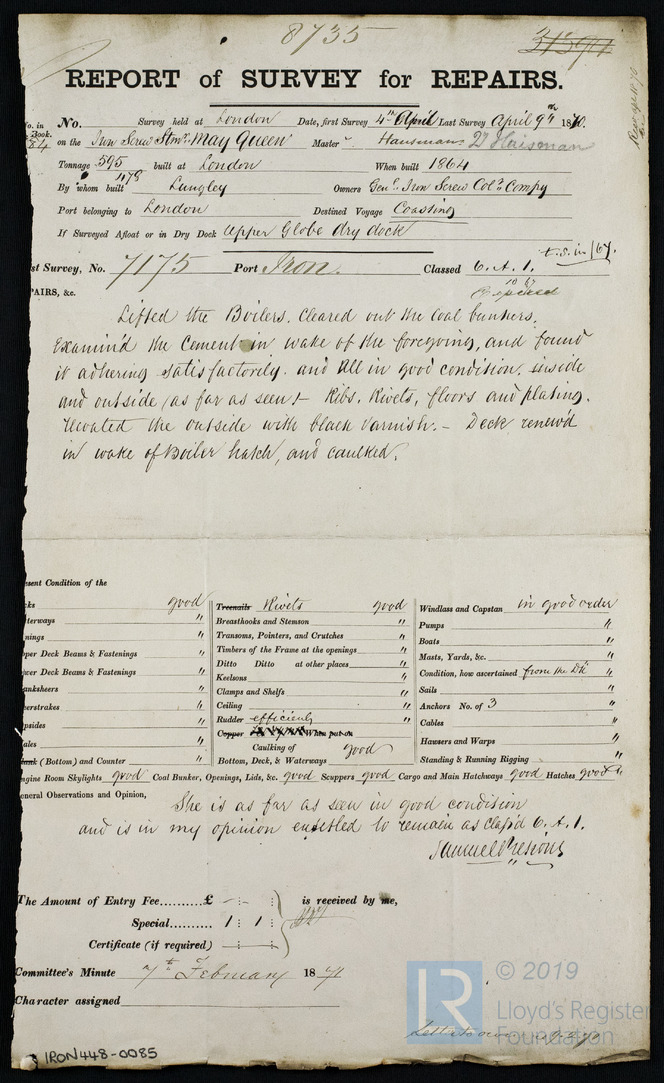 8735
31591
REPORT of SURVEY for REPAIRS.
No. in Book.
84
No. Survey held at London Date, first Survey 4th April Last Survey April 9th 1870.
on the Iron Screw Stmr. May Queen Master Hausman
Tonnage 595 built at London When built 1864
478
By whom built Lungley Owners Genl. Iron Screw Coll. Compy
Port belonging to London Destined Voyage Coasting
If Surveyed Afloat or in Dry Dock Upper Globe dry dock
t.s. in /67.
st Survey, No. 7175 Port Iron. Classed 6. A. 1.
PAIRS, &c.
Lifted the Boilers. Cleared out the Coal bunkers.
Examin'd the Cement in wake of the foregoing, and found
it adhering satisfactorily. and all in good condition, inside
and outside, as far as seen + Ribs. Rivets, floors and plating.
recoated the outside with black varnish. - Deck renew'd
in wake of Boiler hatch, and caulked.
sent Condition of the
cks good
terways "
nings "
pper Deck Beams & Fastenings "
wer Deck Beams & Fastenings "
anksheers "
erstrakes "
psides "
ales "
(Bottom) and Counter "
Treenails Rivets good
Breasthooks and Stemson "
Transoms, Pointers, and Crutches "
Timbers of the Frame at the openings "
Ditto Ditto at other places "
Keelsons "
Clamps and Shelfs "
Ceiling "
Rudder efficient "
Copper When put on
Caulking of
Bottom, Deck, & Waterways good
Windlass and Capstan in good order
Pumps "
Boats "
Masts, Yards, &c. "
Condition, how ascertained from the Dk
Sails "
Anchors No. of 3 "
Cables "
Hawsers and Warps "
Standing & Running Rigging "
ngine Room Skylights good Coal Bunker, Openings, Lids, &c. good Scuppers good Cargo and Main Hatchways good Hatches good
eneral Observations and Opinion,
She is as far as seen in good condition
and is in my opinion entitled to remain as class'd 6. A. 1.
Samuel Presious
The Amount of Entry Fee..........£ - : - : is received by me,
Special.......... 1 : 1 :
Certificate (if required) - : - :
Committee's Minute 7th February 1871
Character assigned
© 2019
LR
Lloyd's Register
Foundation
IRON448-0085